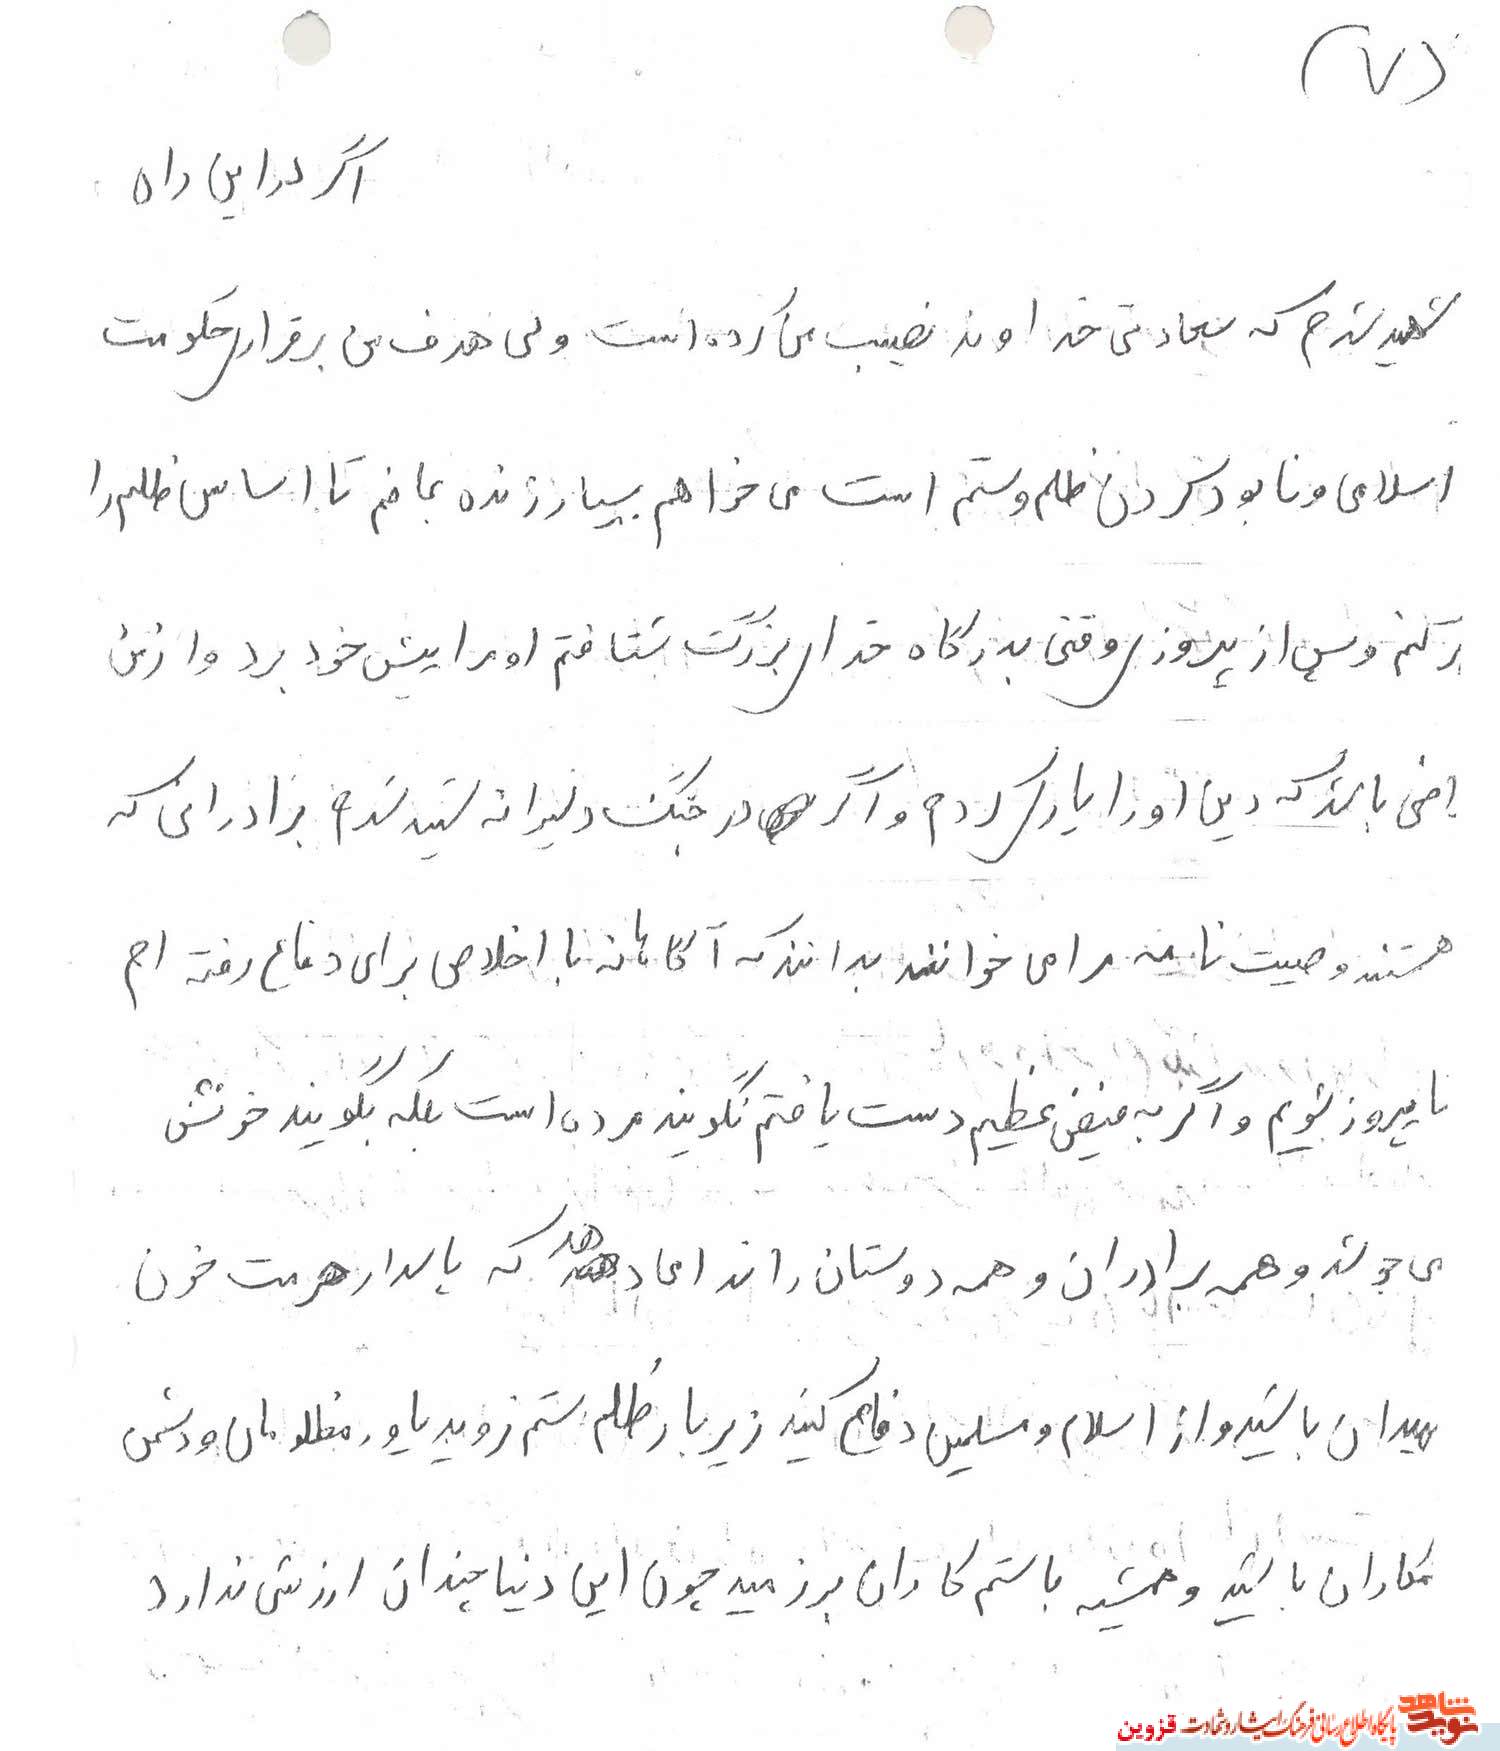 (۷)
اگر در این راه
شهید شدم که سعادتی خداوند نصیب من کرده است ولی هدف من برقراری حکومت
اسلامی و نابود کردن ظلم و ستم است می خواهم بسیار زنده بمانم تا اساس ظلم را
بر کنم و پس از پیروزی وقتی بدرگاه خدای بزرگ شتافتم او مرا پیش خود برد و از من
اضی باشد که دین او را یاری کردم و اگر در جنگ دلیرانه شهید شدم برادرانی که
هستند وصیت نامه مرا می خوانند بدانند که آگاهانه با اخلاص برای دفاع رفته ام
تا پیروز شویم و اگر به فیض عظیم دست یافتم نگویند مرده است بلکه بگویند خونش
می جوشد و همه برادران و همه دوستان را ندا می دهد که پاسدار حرمت خون
هیدان باشید و از اسلام و مسلمین دفاع کنید زیر بار ظلم ستم نروید یاور مظلومان و دشمن
مکاران باشید و همیشه با ستم کاران برزمید چون این دنیا چندان ارزشی ندارد
نوید شاهد پایگاه اطلاع رسانی فرهنگ ایثار و شهادت قزوین